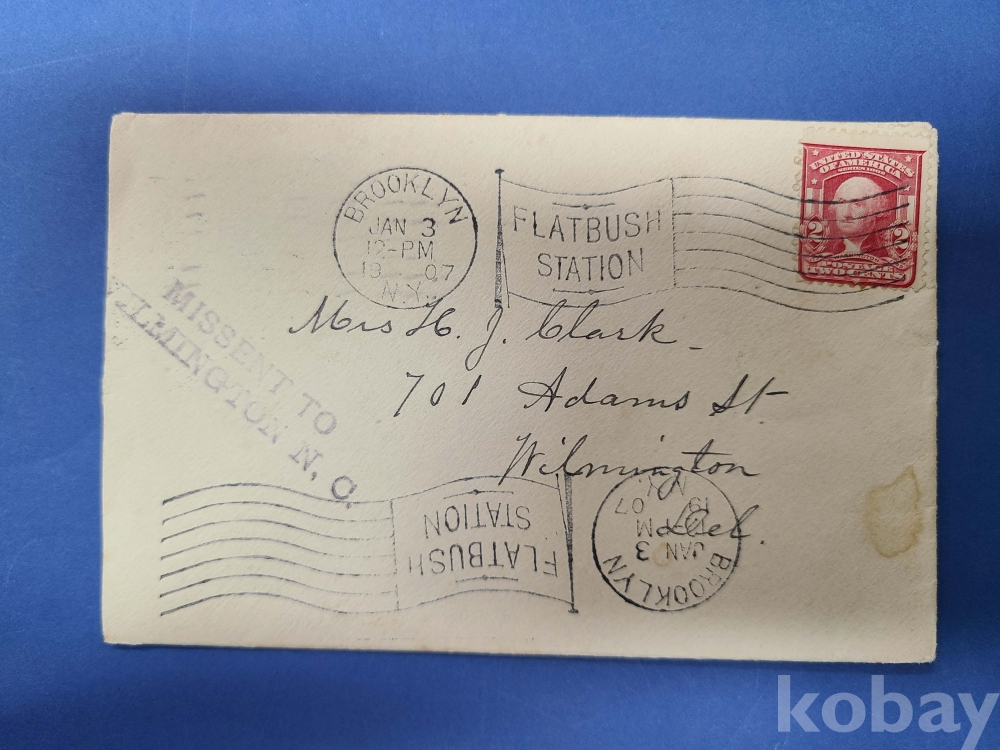 BROOKLYN
JAN 3
12-PM
19 07
N.Y.
FLATBUSH
STATION
UNITED STATES
OF AMERICA
SERIES 1902
2 2
POSTAGE
TWO CENTS
MISSENT TO
WILMINGTON N. C.
Mrs H. J. Clark
701 Adams St
Wilmington
Del.
FLATBUSH
STATION
BROOKLYN
JAN 3
PM
19 07
N.Y.
kobay